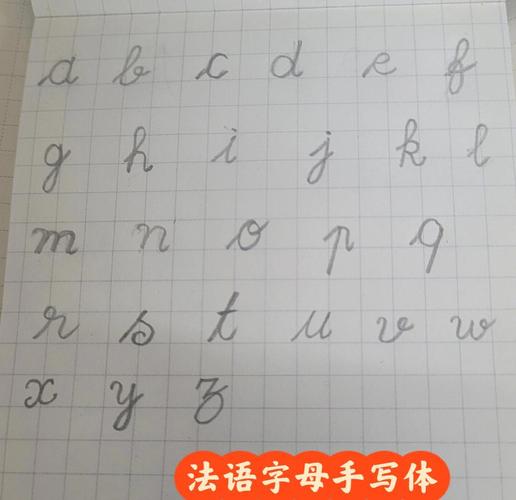 a b c d e f
g h i j k l
m n o p q
r s t u v w
x y z
法语字母手写体